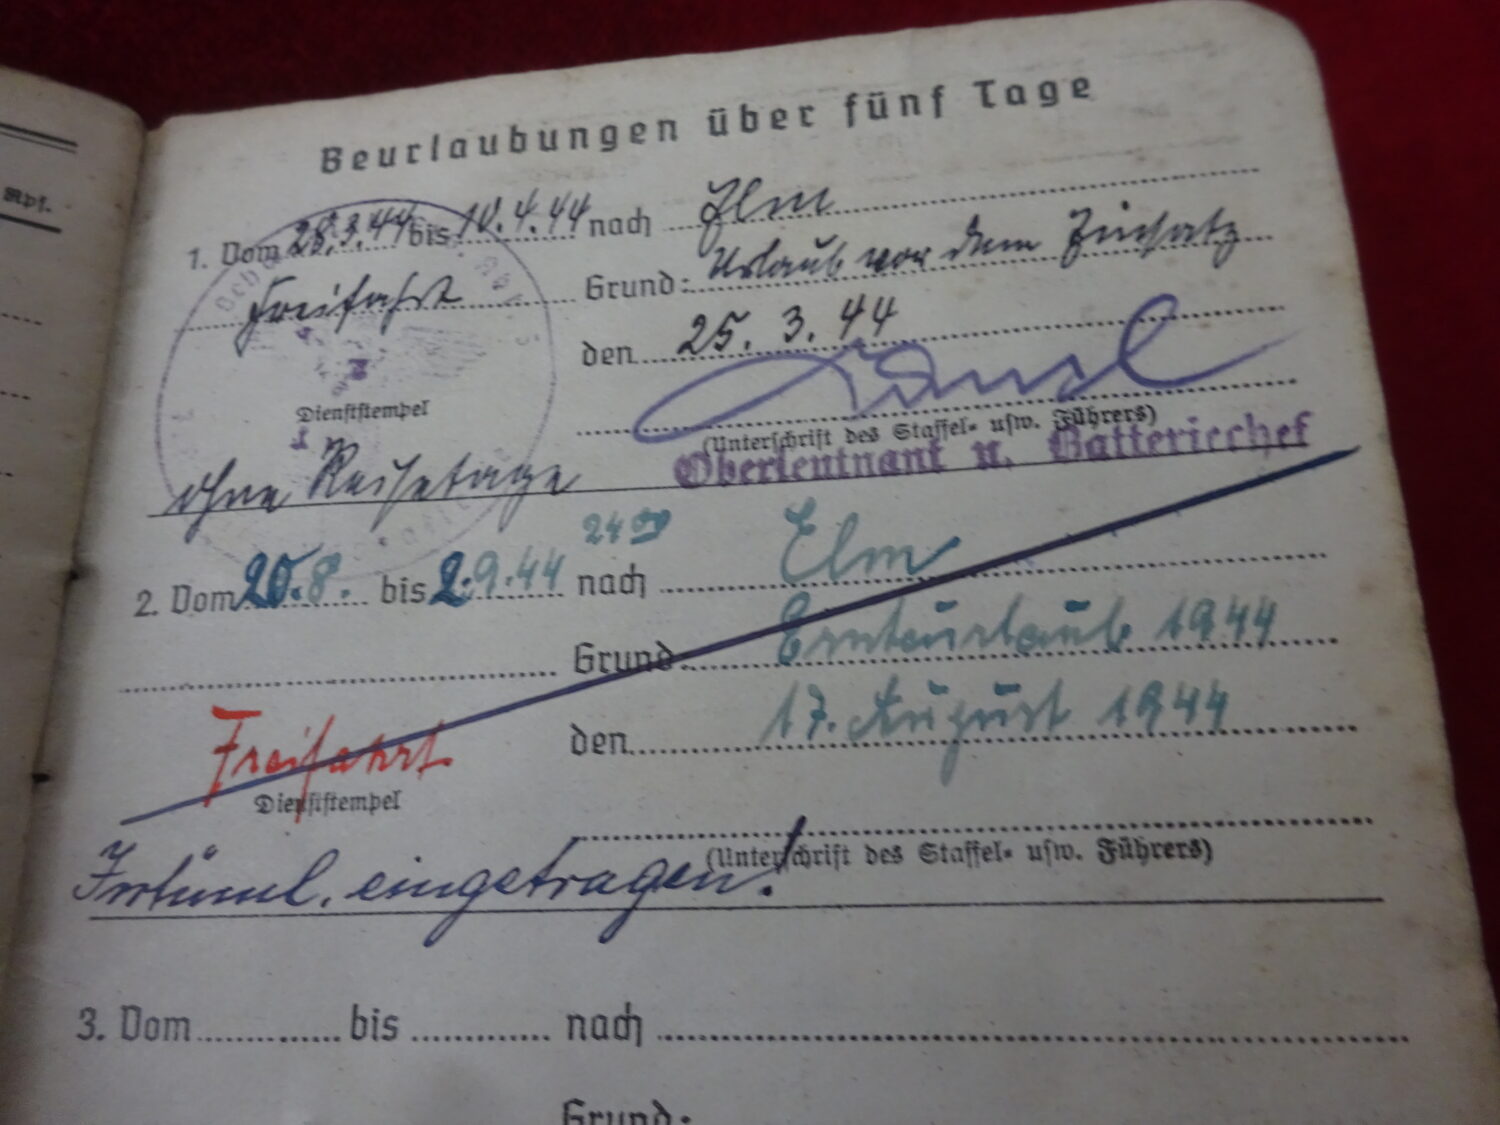 Rpf.
Beurlaubungen über fünf Tage
1. Vom 28.3.44 bis 10.4.44 nach Elm
Freifahrt Grund: Urlaub vor dem Einsatz
den 25. 3. 44
Dienststempel
(Unterschrift des Staffel- usw. Führers)
Oberleutnant u. Batteriechef
ohne Reisetage
24 00
2. Vom 20.8. bis 2.9.44 nach Elm
Grund: Ernteurlaub 1944
Freifahrt den 17. August 1944
Dienststempel
(Unterschrift des Staffel- usw. Führers)
Irrtüml. eingetragen!
3. Vom bis nach
Grund: